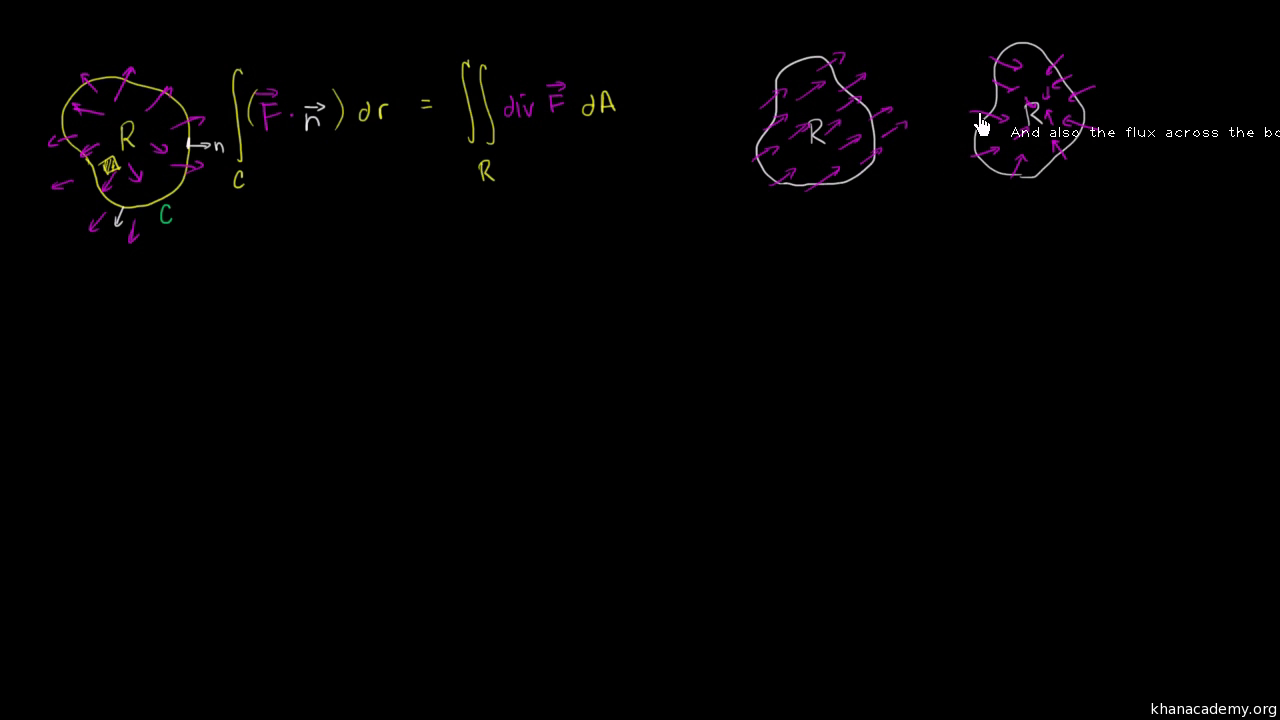 R
n
C
∫_C (F⃗ · n⃗) dr = ∬_R div F⃗ dA
R
R
And also the flux across the bo
khanacademy.org